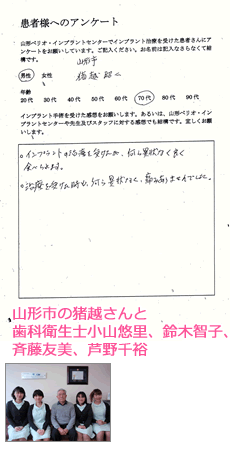 患者様へのアンケート
山形ペリオ・インプラントセンターでインプラント治療を受けた患者さんにア
ンケートをお願いしています。ご記入ください。お名前は記入なさらなくて結
構です。
山形市
猪越
男性 女性
年齢
20代 30代 40代 50代 60代 70代 80代 90代
インプラント手術を受けた感想をお願いします。あるいは、山形ペリオ・イン
プラントセンターや先生及びスタッフに対する感想でも結構です。宜しくお願
いします。
○インプラントの治療を受けたが、何ら異状なく良く
食べられます。
○治療を受けた時も、何ら異状なく、痛みありませんでした。
山形市の猪越さんと
歯科衛生士小山悠里、鈴木智子、
斉藤友美、芦野千裕